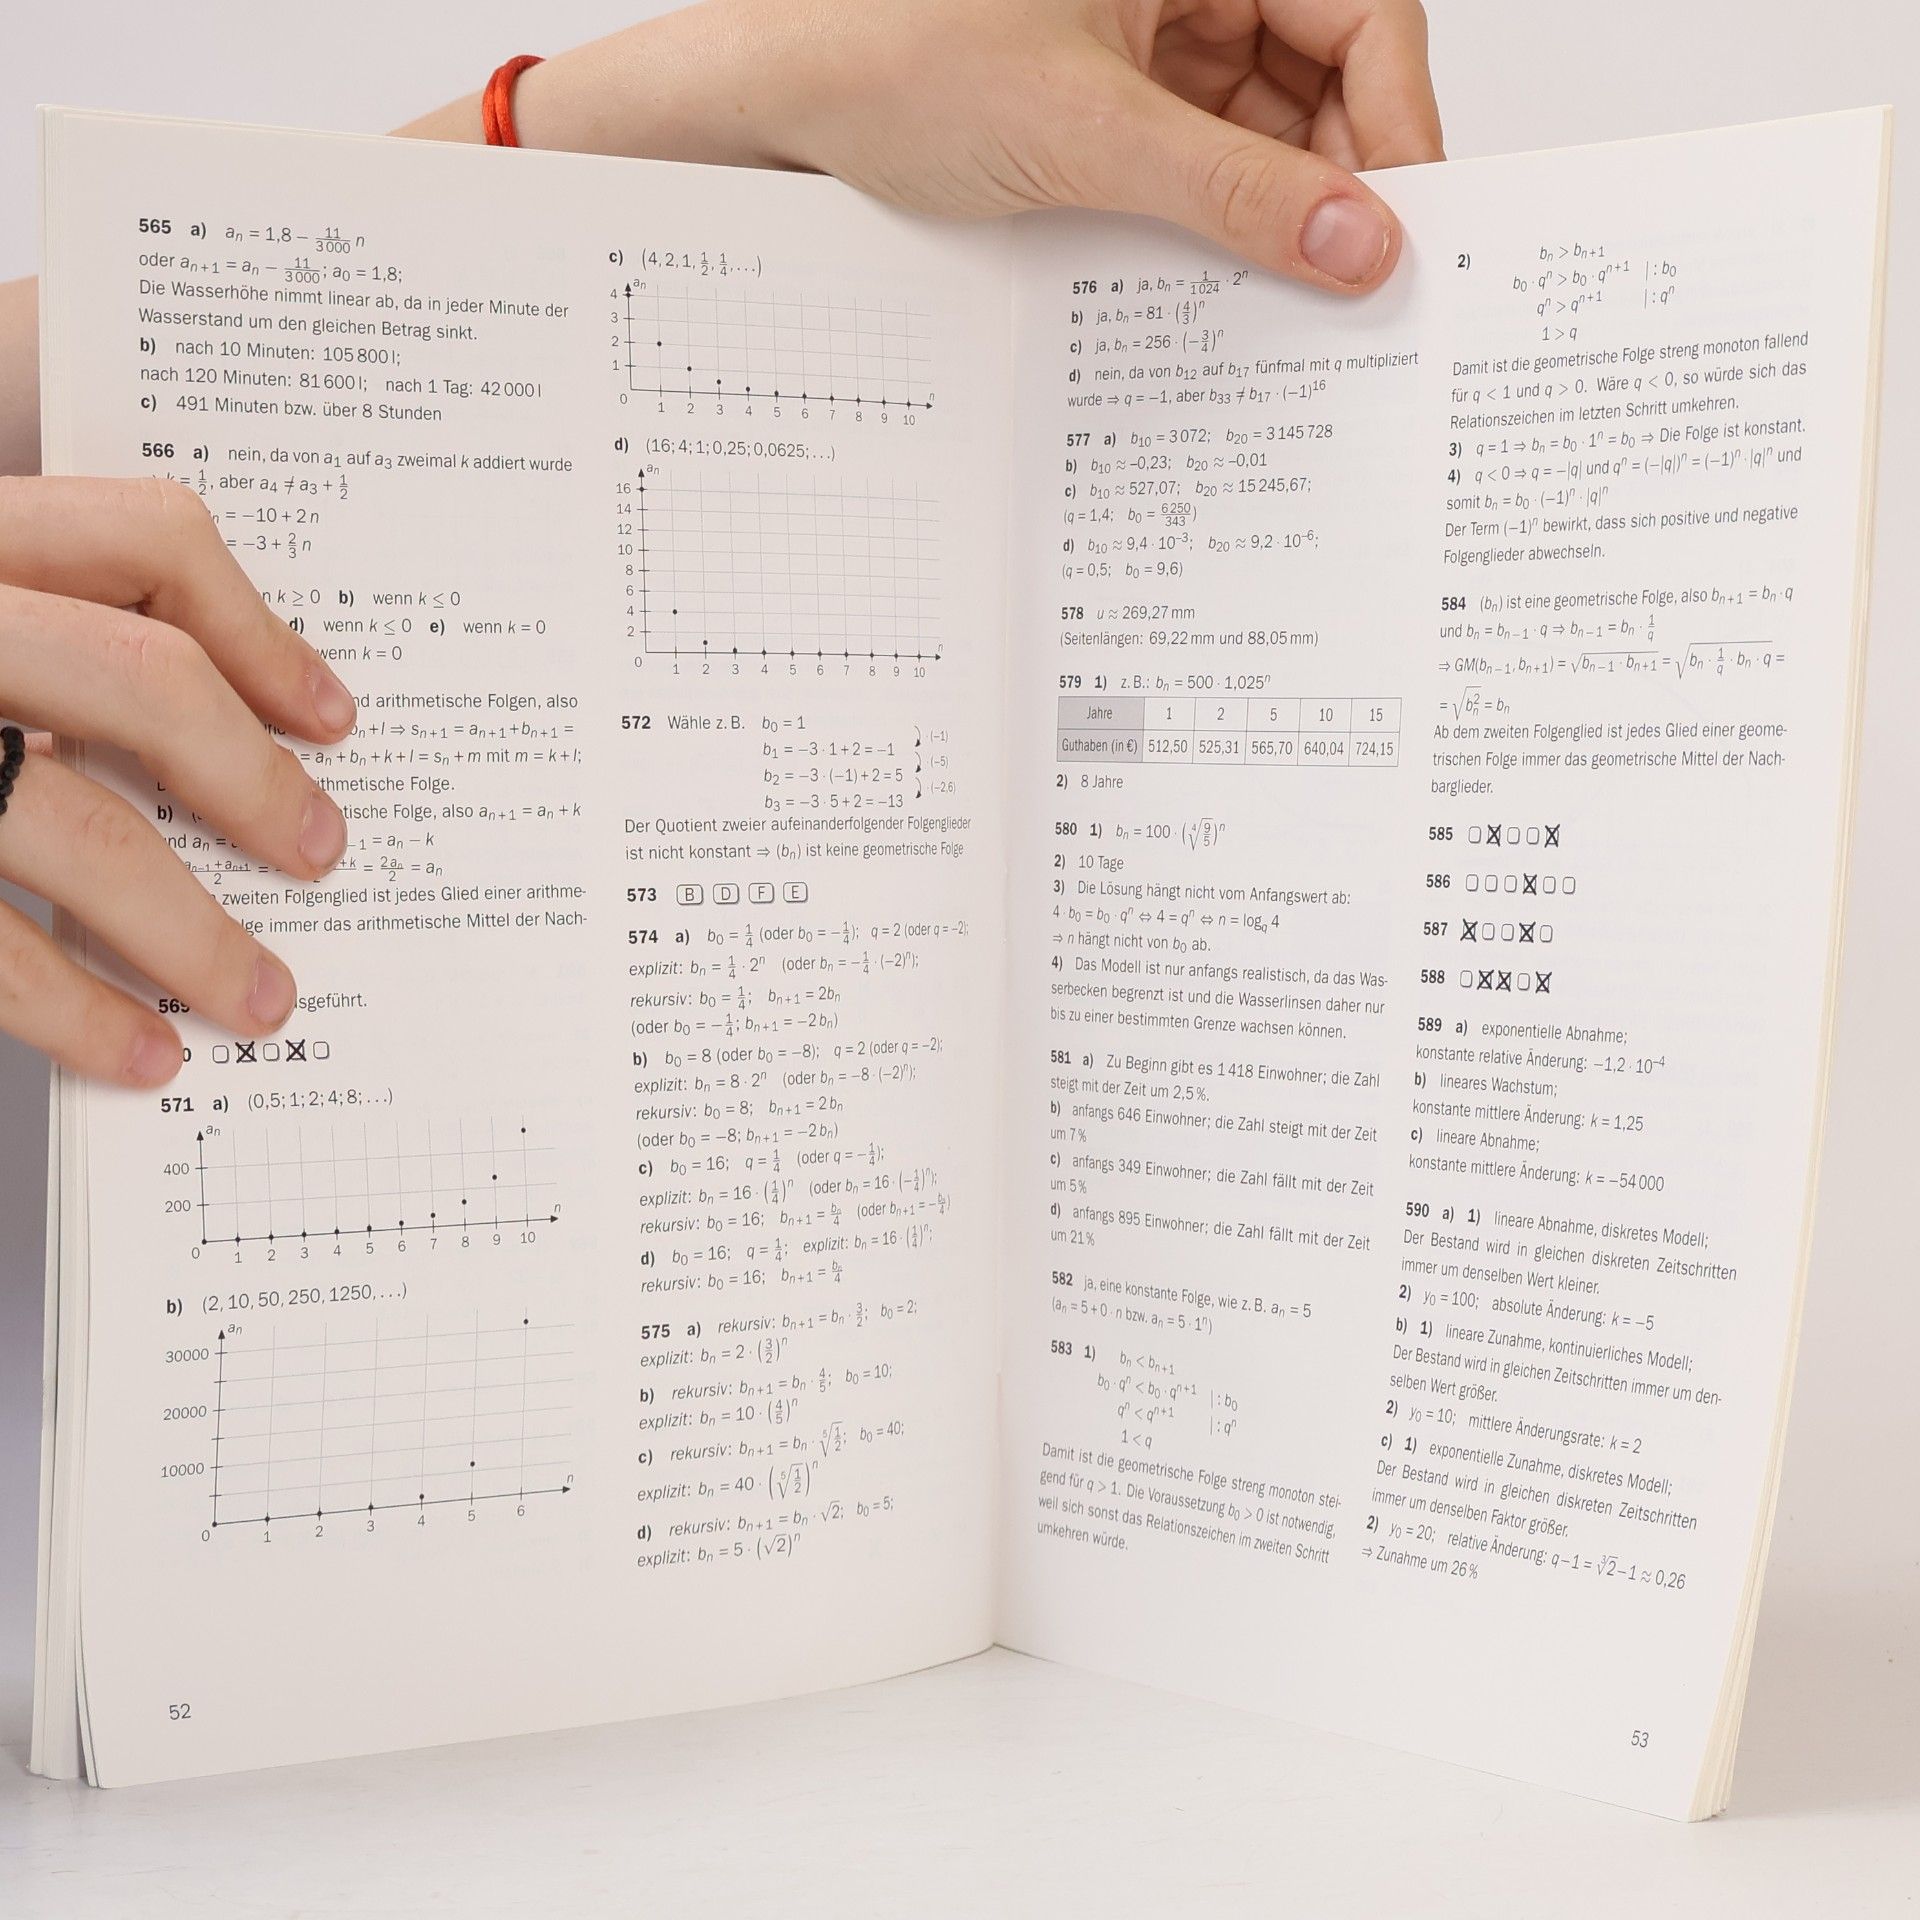 565 a) aₙ = 1,8 − 11/3000 n
oder aₙ₊₁ = aₙ − 11/3000; a₀ = 1,8;
Die Wasserhöhe nimmt linear ab, da in jeder Minute der
Wasserstand um den gleichen Betrag sinkt.
b) nach 10 Minuten: 105 800 l;
nach 120 Minuten: 81 600 l; nach 1 Tag: 42 000 l
c) 491 Minuten bzw. über 8 Stunden
566 a) nein, da von a₁ auf a₃ zweimal k addiert wurde
k = 1/2, aber a₄ ≠ a₃ + 1/2
n = −10 + 2 n
= −3 + 2/3 n
k ≥ 0 b) wenn k ≤ 0
d) wenn k ≤ 0 e) wenn k = 0
wenn k = 0
arithmetische Folgen, also
bₙ + l ⇒ sₙ₊₁ = aₙ₊₁ + bₙ₊₁ =
= aₙ + bₙ + k + l = sₙ + m mit m = k + l;
Folge.
b) Folge, also aₙ₊₁ = aₙ + k
aₙ = −1 = aₙ − k
aₙ₋₁ + aₙ₊₁/2 = +k = 2aₙ/2 = aₙ
zweiten Folgenglied ist jedes Glied einer arithme-
immer das arithmetische Mittel der Nach-
☐ ☒ ☐ ☒ ☐
571 a) (0,5; 1; 2; 4; 8; …)
aₙ
400
200
n
0 1 2 3 4 5 6 7 8 9 10
b) (2, 10, 50, 250, 1250, …)
aₙ
30000
20000
10000
n
0 1 2 3 4 5 6
52
c) (4, 2, 1, 1/2, 1/4, …)
aₙ
4
3
2
1
n
0 1 2 3 4 5 6 7 8 9 10
d) (16; 4; 1; 0,25; 0,0625; …)
aₙ
16
14
12
10
8
6
4
2
n
0 1 2 3 4 5 6 7 8 9 10
572 Wähle z. B. b₀ = 1
b₁ = −3 · 1 + 2 = −1 · (−1)
b₂ = −3 · (−1) + 2 = 5 · (−5)
b₃ = −3 · 5 + 2 = −13 · (−2,6)
Der Quotient zweier aufeinanderfolgender Folgenglieder
ist nicht konstant ⇒ (bₙ) ist keine geometrische Folge
573 B D F E
574 a) b₀ = 1/4 (oder b₀ = −1/4); q = 2 (oder q = −2);
explizit: bₙ = 1/4 · 2ⁿ (oder bₙ = −1/4 · (−2)ⁿ);
rekursiv: b₀ = 1/4; bₙ₊₁ = 2bₙ
(oder b₀ = −1/4; bₙ₊₁ = −2 bₙ)
b) b₀ = 8 (oder b₀ = −8); q = 2 (oder q = −2);
explizit: bₙ = 8 · 2ⁿ (oder bₙ = −8 · (−2)ⁿ);
rekursiv: b₀ = 8; bₙ₊₁ = 2 bₙ
(oder b₀ = −8; bₙ₊₁ = −2 bₙ)
c) b₀ = 16; q = 1/4 (oder q = −1/4);
explizit: bₙ = 16 · (1/4)ⁿ (oder bₙ = 16 · (−1/4)ⁿ);
rekursiv: b₀ = 16; bₙ₊₁ = bₙ/4 (oder bₙ₊₁ = −bₙ/4)
d) b₀ = 16; q = 1/4; explizit: bₙ = 16 · (1/4)ⁿ;
rekursiv: b₀ = 16; bₙ₊₁ = bₙ/4
575 a) rekursiv: bₙ₊₁ = bₙ · 3/2; b₀ = 2;
explizit: bₙ = 2 · (3/2)ⁿ
b) rekursiv: bₙ₊₁ = bₙ · 4/5; b₀ = 10;
explizit: bₙ = 10 · (4/5)ⁿ
c) rekursiv: bₙ₊₁ = bₙ · ⁵√(1/2); b₀ = 40;
explizit: bₙ = 40 · (⁵√(1/2))ⁿ
d) rekursiv: bₙ₊₁ = bₙ · √2; b₀ = 5;
explizit: bₙ = 5 · (√2)ⁿ
576 a) ja, bₙ = 1/1024 · 2ⁿ
b) ja, bₙ = 81 · (4/3)ⁿ
c) ja, bₙ = 256 · (−3/4)ⁿ
d) nein, da von b₁₂ auf b₁₇ fünfmal mit q multipliziert
wurde ⇒ q = −1, aber b₃₃ ≠ b₁₇ · (−1)¹⁶
577 a) b₁₀ = 3 072; b₂₀ = 3 145 728
b) b₁₀ ≈ −0,23; b₂₀ ≈ −0,01
c) b₁₀ ≈ 527,07; b₂₀ ≈ 15 245,67;
(q = 1,4; b₀ = 6250/343)
d) b₁₀ ≈ 9,4 · 10⁻³; b₂₀ ≈ 9,2 · 10⁻⁶;
(q = 0,5; b₀ = 9,6)
578 u ≈ 269,27 mm
(Seitenlängen: 69,22 mm und 88,05 mm)
579 1) z. B.: bₙ = 500 · 1,025ⁿ
Jahre 1 2 5 10 15
Guthaben (in €) 512,50 525,31 565,70 640,04 724,15
2) 8 Jahre
580 1) bₙ = 100 · (⁴√(9/5))ⁿ
2) 10 Tage
3) Die Lösung hängt nicht vom Anfangswert ab:
4 · b₀ = b₀ · qⁿ ⇔ 4 = qⁿ ⇔ n = log_q 4
⇒ n hängt nicht von b₀ ab.
4) Das Modell ist nur anfangs realistisch, da das Was-
serbecken begrenzt ist und die Wasserlinsen daher nur
bis zu einer bestimmten Grenze wachsen können.
581 a) Zu Beginn gibt es 1 418 Einwohner; die Zahl
steigt mit der Zeit um 2,5 %.
b) anfangs 646 Einwohner; die Zahl steigt mit der Zeit
um 7 %
c) anfangs 349 Einwohner; die Zahl fällt mit der Zeit
um 5 %
d) anfangs 895 Einwohner; die Zahl fällt mit der Zeit
um 21 %
582 ja, eine konstante Folge, wie z. B. aₙ = 5
(aₙ = 5 + 0 · n bzw. aₙ = 5 · 1ⁿ)
583 1) bₙ < bₙ₊₁
b₀ · qⁿ < b₀ · qⁿ⁺¹ | : b₀
qⁿ < qⁿ⁺¹ | : qⁿ
1 < q
Damit ist die geometrische Folge streng monoton stei-
gend für q > 1. Die Voraussetzung b₀ > 0 ist notwendig,
weil sich sonst das Relationszeichen im zweiten Schritt
umkehren würde.
2) bₙ > bₙ₊₁
b₀ · qⁿ > b₀ · qⁿ⁺¹ | : b₀
qⁿ > qⁿ⁺¹ | : qⁿ
1 > q
Damit ist die geometrische Folge streng monoton fallend
für q < 1 und q > 0. Wäre q < 0, so würde sich das
Relationszeichen im letzten Schritt umkehren.
3) q = 1 ⇒ bₙ = b₀ · 1ⁿ = b₀ ⇒ Die Folge ist konstant.
4) q < 0 ⇒ q = −|q| und qⁿ = (−|q|)ⁿ = (−1)ⁿ · |q|ⁿ und
somit bₙ = b₀ · (−1)ⁿ · |q|ⁿ
Der Term (−1)ⁿ bewirkt, dass sich positive und negative
Folgenglieder abwechseln.
584 (bₙ) ist eine geometrische Folge, also bₙ₊₁ = bₙ · q
und bₙ = bₙ₋₁ · q ⇒ bₙ₋₁ = bₙ · 1/q
⇒ GM(bₙ₋₁, bₙ₊₁) = √(bₙ₋₁ · bₙ₊₁) = √(bₙ · 1/q · bₙ · q) =
= √(bₙ²) = bₙ
Ab dem zweiten Folgenglied ist jedes Glied einer geome-
trischen Folge immer das geometrische Mittel der Nach-
barglieder.
585 ☐ ☒ ☐ ☐ ☒
586 ☐ ☐ ☐ ☒ ☐ ☐
587 ☒ ☐ ☐ ☒ ☐
588 ☐ ☒ ☒ ☐ ☒
589 a) exponentielle Abnahme;
konstante relative Änderung: −1,2 · 10⁻⁴
b) lineares Wachstum;
konstante mittlere Änderung: k = 1,25
c) lineare Abnahme;
konstante mittlere Änderung: k = −54 000
590 a) 1) lineare Abnahme, diskretes Modell;
Der Bestand wird in gleichen diskreten Zeitschritten
immer um denselben Wert kleiner.
2) y₀ = 100; absolute Änderung: k = −5
b) 1) lineare Zunahme, kontinuierliches Modell;
Der Bestand wird in gleichen Zeitschritten immer um den-
selben Wert größer.
2) y₀ = 10; mittlere Änderungsrate: k = 2
c) 1) exponentielle Zunahme, diskretes Modell;
Der Bestand wird in gleichen diskreten Zeitschritten
immer um denselben Faktor größer.
2) y₀ = 20; relative Änderung: q − 1 = ³√2 − 1 ≈ 0,26
⇒ Zunahme um 26 %
53